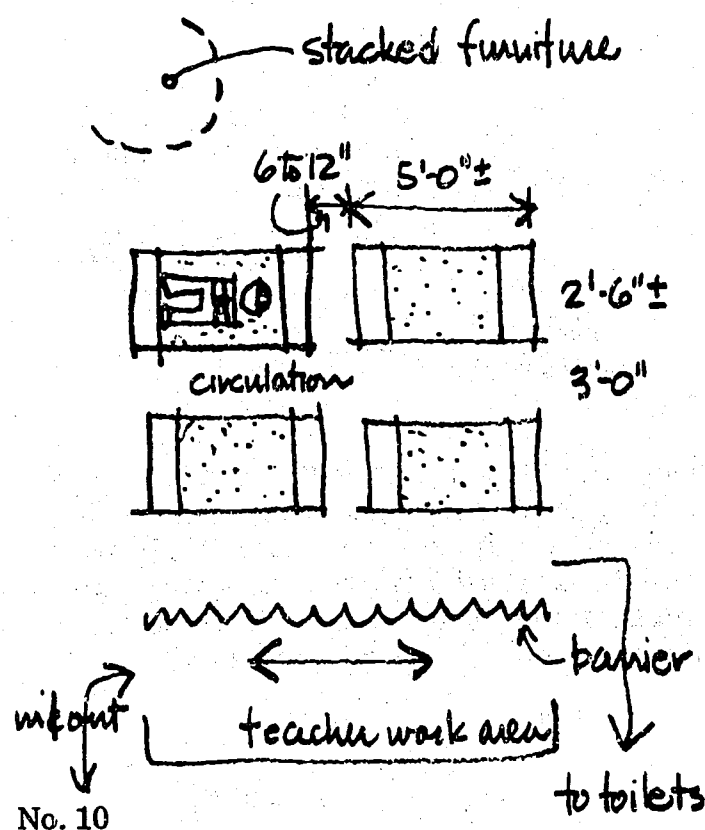 stacked furniture
6 to 12" 5'-0" ±
2'-6" ±
circulation 3'-0"
barrier
in & out
teacher work area
to toilets
No. 10